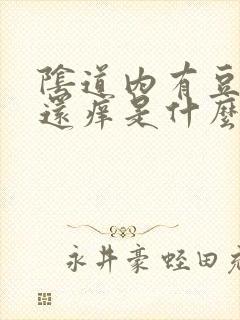 陰道内有豆
還痒是什麼
永井豪蛭田充